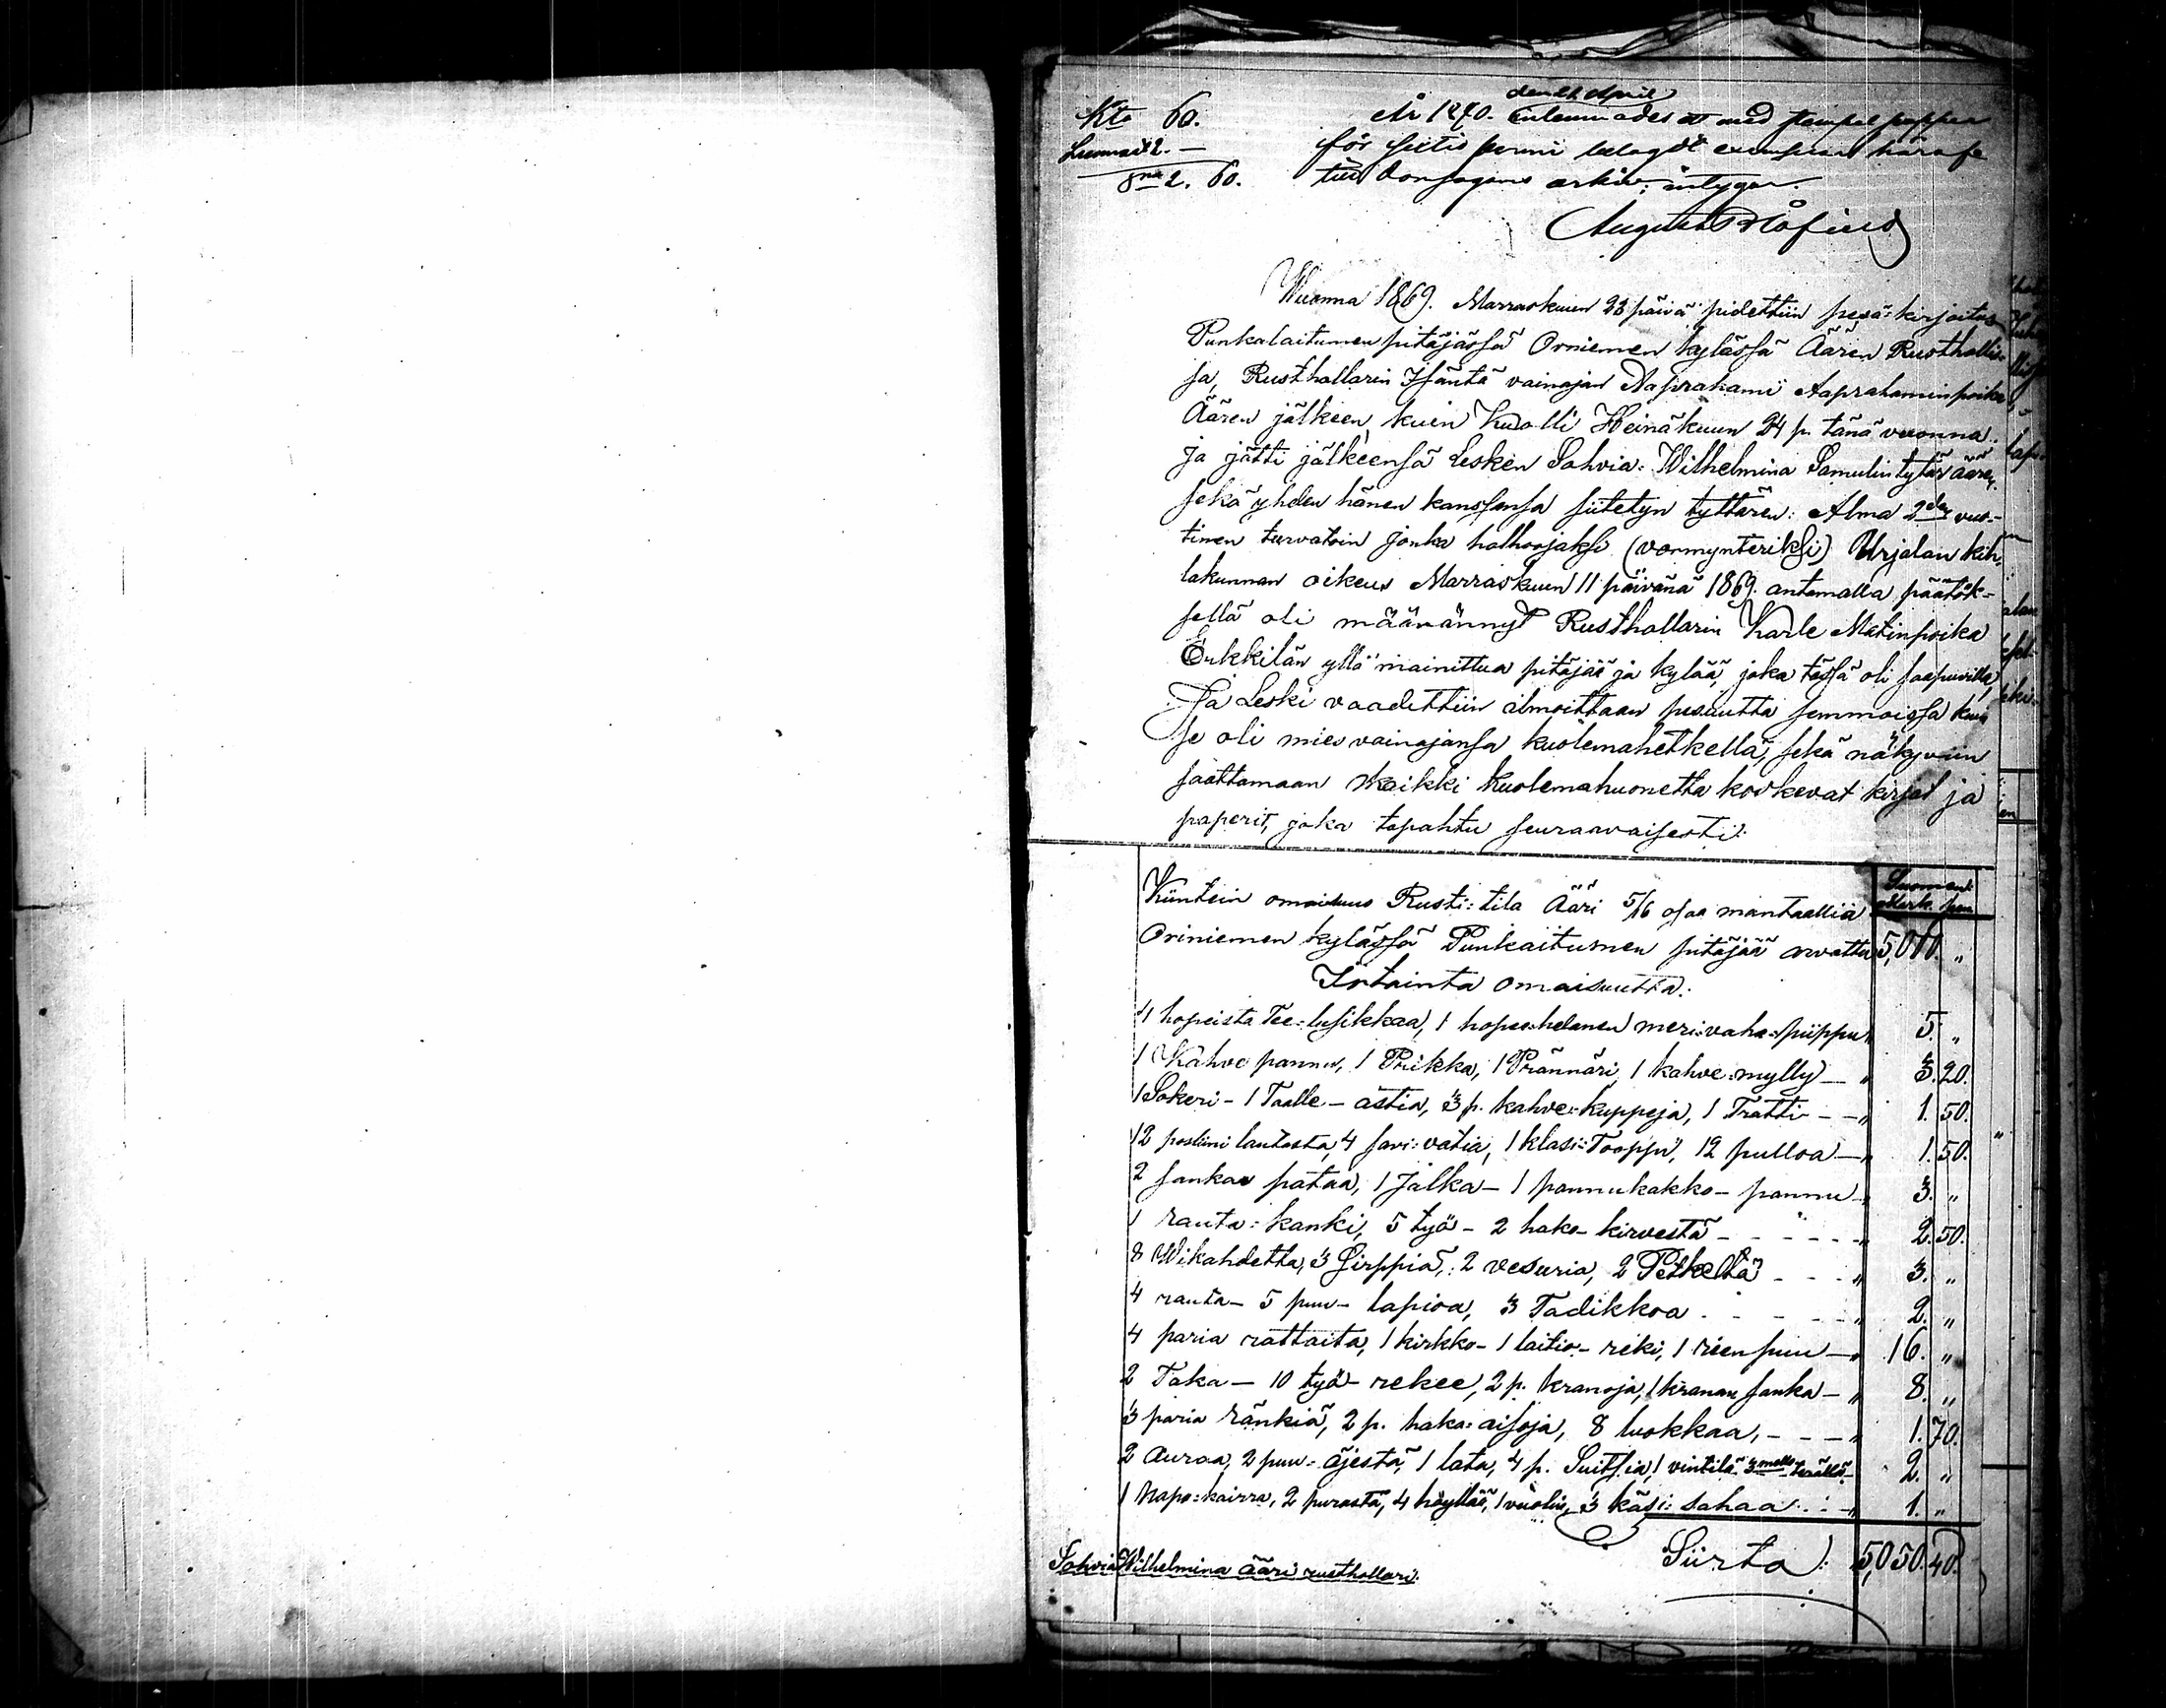 Kto 60.
Lunnait 2. —
Sma 2. 60.
År 1870. den April inlemnades ett med stempel papper
för sextio penni belagdt exemplar häraf
till Domsagans arkiv; intygar.
August
Wuonna 1869. Marraskuun 23 päivä pidettiin pesä=kirjoitus
Punkalaitumen pitäjässä Oriniemen kylässä Äären Rusthollis=
sa, Rusthollarin Isäntä vainajan Aaprahami Aaprahaminpoika
Äären jälkeen, kuin kuolli Heinäkuun 24 p. tänä vuonna.
ja jätti jälkeensä Lesken Sohvia=Wilhelmina Samulin tytär Ääri,
sekä yhden hänen kanssansa siitetyn tyttären: Alma 2den vuo=
tinen turvatoin jonka holhoojaksi (vormynteriksi) Urjalan kih,
lakunnan oikeus Marraskuun 11 päivänä 1869. antamalla päätök=
sellä oli määrännyt Rusthollarin Karle Matinpoika
Erkkilän yllä mainittua pitäjää ja kylää, joka tässä oli saapuvilla,
Ja Leski vaadettiin ilmoittaan pesäntta semmoissa kuin
se oli mies vainajansa kuolemahetkellä, sekä näkyviin
saattamaan kaikki kuolemahuonetta koskevat kirjat ja
paperit, joka tapahtu seuraavaisesti:
Suomen
Mark. pen
Kiintein omaisuus Rusti=tila Ääri 5/16 osaa mantaallia
Oriniemen kylässä Punkaitumen pitäjää arvattu 5,000. „
Irtainta omaisuutta:
4 hopeista Tee=lusikkaa, 1 hopea=helanen meri=vaha=piippu „ 5. „
1 Kahve pannu, 1 Prikka, 1 Prännäri, 1 kahve=mylly — „ 3. 20.
1 Sokeri - 1 Taalle - astia, 3 p. kahve=kuppeja, 1 Tratti - - „ 1. 50.
12 posliini lautasta, 4 savi=vatia, 1 klasi=Tooppi, 12 pulloa — „ 1. 50.
2 sankaa pataa, 1 Jalka - 1 pannukakko - pannu - „ 3. „
1 rauta=kanki, 5 työ - 2 hako - kirvestä - - - - - „ 2. 50.
8 Wikahdetta, 3 Sirppiä, 2 vesuria, 2 Petkeltä - - - „ 3. „
4 rauta - 5 puu - lapioa, 3 Tadikkoa - - - - „ 2. „
4 paria rattaita, 1 kirkko - 1 laitio - reki, 1 reen puu — „ 16. „
2 Taka — 10 työ - rekee, 2 p. kranoja, 1 kranan sanka — „ 8. „
3 paria ränkiä, 2 p. haka=aisoja, 8 luokkaa, - - - „ 1. 70.
2 Auraa, 2 puu=äjestä, 1 lata, 4 p. Suitsia, 1 vintilä 3mella terällä - 2. „
1 Napa=kairra, 2 purasta, 4 höyllää, 1 vuolin, 3 käsi=sahaa - - „ 1. „
Siirta: 5,050. 40.
Sohvia Wilhelmina Ääri rusthollari.